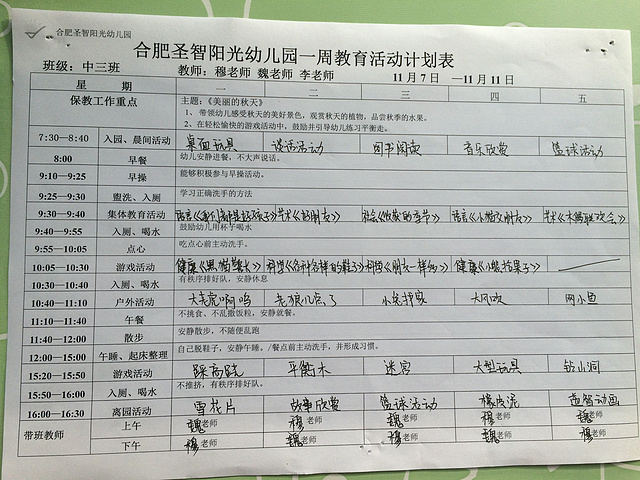 合肥圣智阳光幼儿园
合肥圣智阳光幼儿园一周教育活动计划表
班级：中三班 教师：穆老师 魏老师 李老师 11月7日 —11月11日
星 期 一 二 三 四 五
保教工作重点 主题：《美丽的秋天》
1、带领幼儿感受秋天的美好景色，观赏秋天的植物，品尝秋季的水果。
2、在轻松愉快的游戏活动中，鼓励并引导幼儿练习平衡走。
7:30—8:40 入园、晨间活动 桌面玩具 谈话活动 图书阅读 音乐欣赏 篮球活动
8:00 早餐 幼儿安静进餐，不大声说话。
9:10—9:25 早操 能够积极参与早操活动。
9:25—9:30 盥洗、入厕 学习正确洗手的方法
9:30—9:40 集体教育活动 语言《我们都是好孩子》 艺术《好朋友》 社会《收获的季节》 语言《小猫交朋友》 艺术《木偶联欢会》
9:40—9:55 入厕、喝水 鼓励幼儿用杯子喝水
9:55—10:05 点心 吃点心前主动洗手。
10:05—10:30 游戏活动 健康《黑猫警长》 科学《各种各样的鞋子》 科学《朋友一样多》 健康《小熊拾果子》
10:30—10:40 入厕、喝水 有秩序排好队，安静休息
10:40—11:10 户外活动 大老虎啊呜 老狼几点了 小兔找家 大风吹 网小鱼
11:10—11:40 午餐 不挑食、不乱撒饭粒，安静就餐。
11:40—12:00 散步 安静散步，不随便乱跑
12:00—15:00 午睡、起床整理 自己脱鞋子，安静午睡。/餐点前主动洗手，并形成习惯。
15:20—15:50 游戏活动 踩高跷 平衡木 迷宫 大型玩具 钻山洞
15:50—16:00 入厕、喝水 不推挤，有秩序排好队。
16:00—16:30 离园活动 雪花片 故事欣赏 篮球活动 橡皮泥 益智动画
带班教师 上午 魏老师 穆老师 魏老师 穆老师 魏老师
下午 穆老师 魏老师 穆老师 魏老师 穆老师